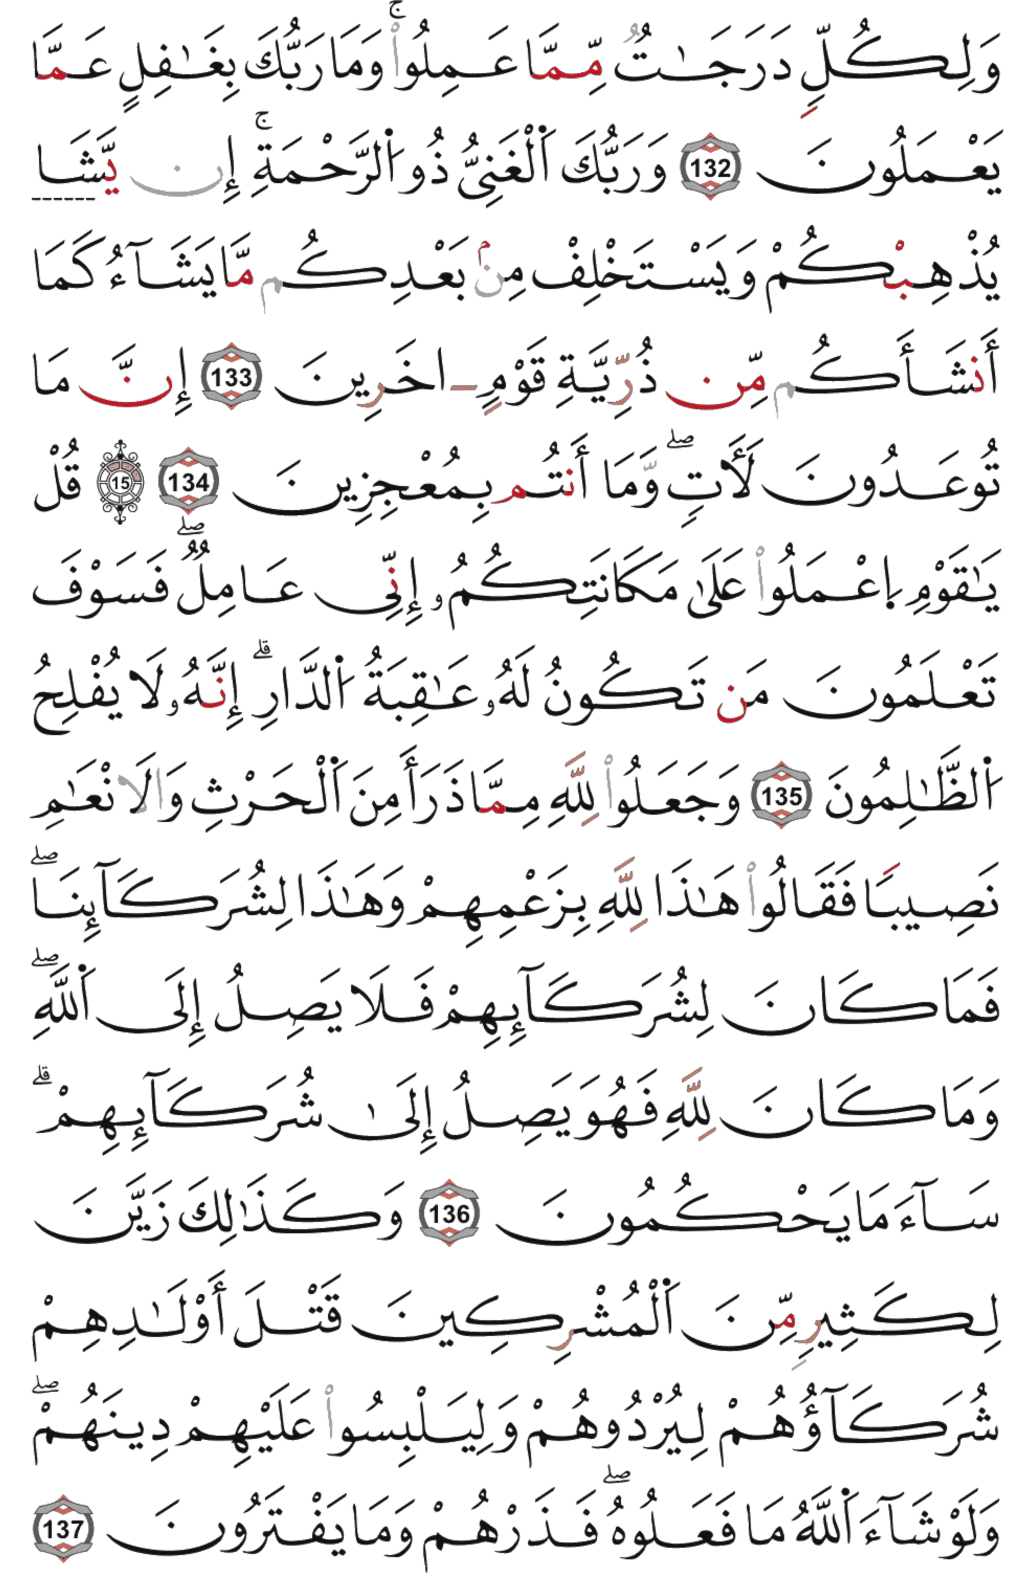 وَلِكُلِّ دَرَجَٰتٌ مِّمَّا عَمِلُواْۚ وَمَا رَبُّكَ بِغَٰفِلٍ عَمَّا
يَعْمَلُونَ 132 وَرَبُّكَ اَ۬لْغَنِيُّ ذُو اُ۬لرَّحْمَةِۚ إِنْ يَّشَا
يُذْهِبْكُمْ وَيَسْتَخْلِفْ مِنۢ بَعْدِكُم مَّا يَشَآءُ كَمَا
أَنشَأَكُم مِّن ذُرِّيَّةِ قَوْمٍ اخَرِينَ 133 إِنَّ مَا
تُوعَدُونَ لَأٓتٖۖ وَمَا أَنتُم بِمُعْجِزِينَ 134 15 قُلْ
يَٰقَوْمِ اِعْمَلُواْ عَلَىٰ مَكَانَتِكُمُۥ إِنِّي عَامِلٌۖ فَسَوْفَ
تَعْلَمُونَ مَن تَكُونُ لَهُۥ عَٰقِبَةُ اُ۬لدَّارِۗ إِنَّهُۥ لَا يُفْلِحُ
اُ۬لظَّٰلِمُونَ 135 وَجَعَلُواْ لِلهِ مِمَّا ذَرَأَ مِنَ اَ۬لْحَرْثِ وَالَانْعَٰمِ
نَصِيبًا فَقَالُواْ هَٰذَا لِلهِ بِزَعْمِهِمْ وَهَٰذَا لِشُرَكَآئِنَاۖ
فَمَا كَانَ لِشُرَكَآئِهِمْ فَلَا يَصِلُ إِلَى اَ۬للَّهِۖ
وَمَا كَانَ لِلهِ فَهُوَ يَصِلُ إِلَىٰ شُرَكَآئِهِمْۗ
سَآءَ مَا يَحْكُمُونَ 136 وَكَذَٰلِكَ زَيَّنَ
لِكَثِيرٍ مِّنَ اَ۬لْمُشْرِكِينَ قَتْلَ أَوْلَٰدِهِمْ
شُرَكَآؤُهُمْ لِيُرْدُوهُمْ وَلِيَلْبِسُواْ عَلَيْهِمْ دِينَهُمْۖ
وَلَوْ شَآءَ اَ۬للَّهُ مَا فَعَلُوهُۖ فَذَرْهُمْ وَمَا يَفْتَرُونَ 137